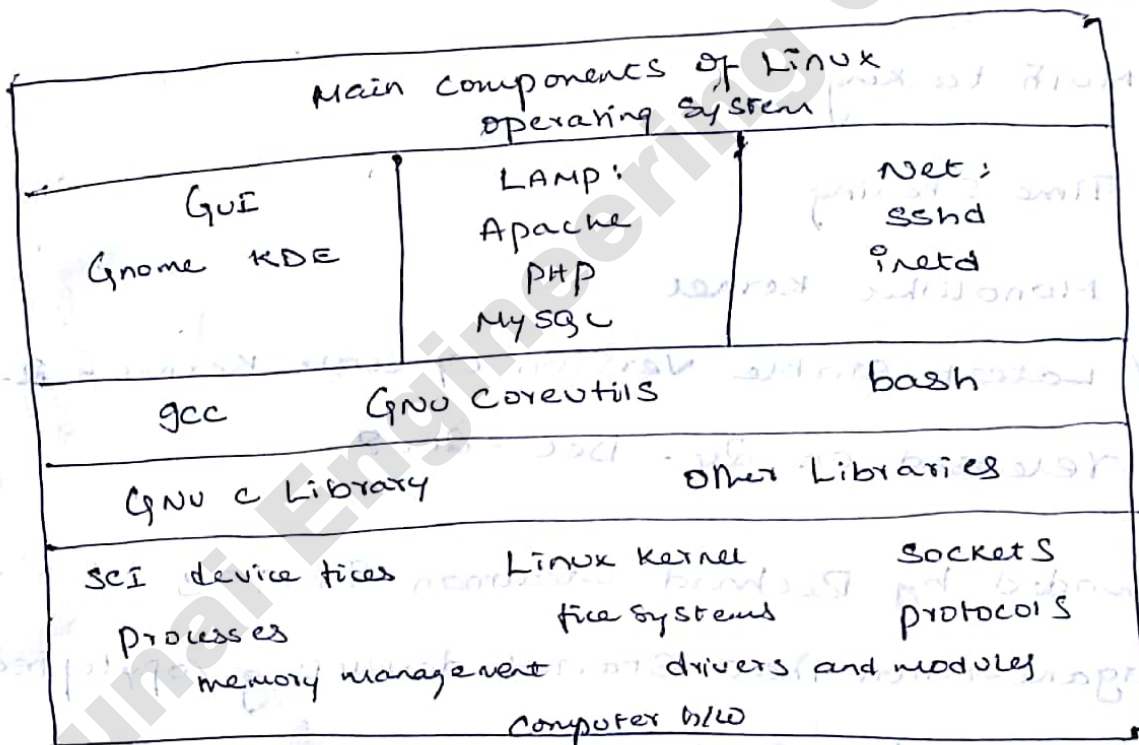 Main components of Linux
operating system
GUI
Gnome KDE
LAMP:
Apache
PHP
MySQL
Net:
sshd
inetd
gcc GNU Coreutils bash
GNU C Library Other Libraries
SCI device files Linux Kernel Sockets
Processes file systems protocols
memory management drivers and modules
Computer h/w
unai Engineering